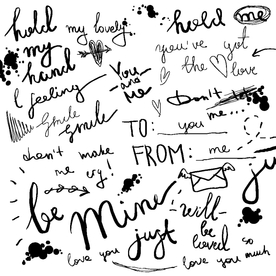 hold
my
hand
my lovely
hold
me
you've got
the love
I feeling
You
and
Me
Don't
me
smile
smile
TO: you
FROM: me
don't make
me cry!
be Mine
just
will
be
loved
love you
so
love you much
ju